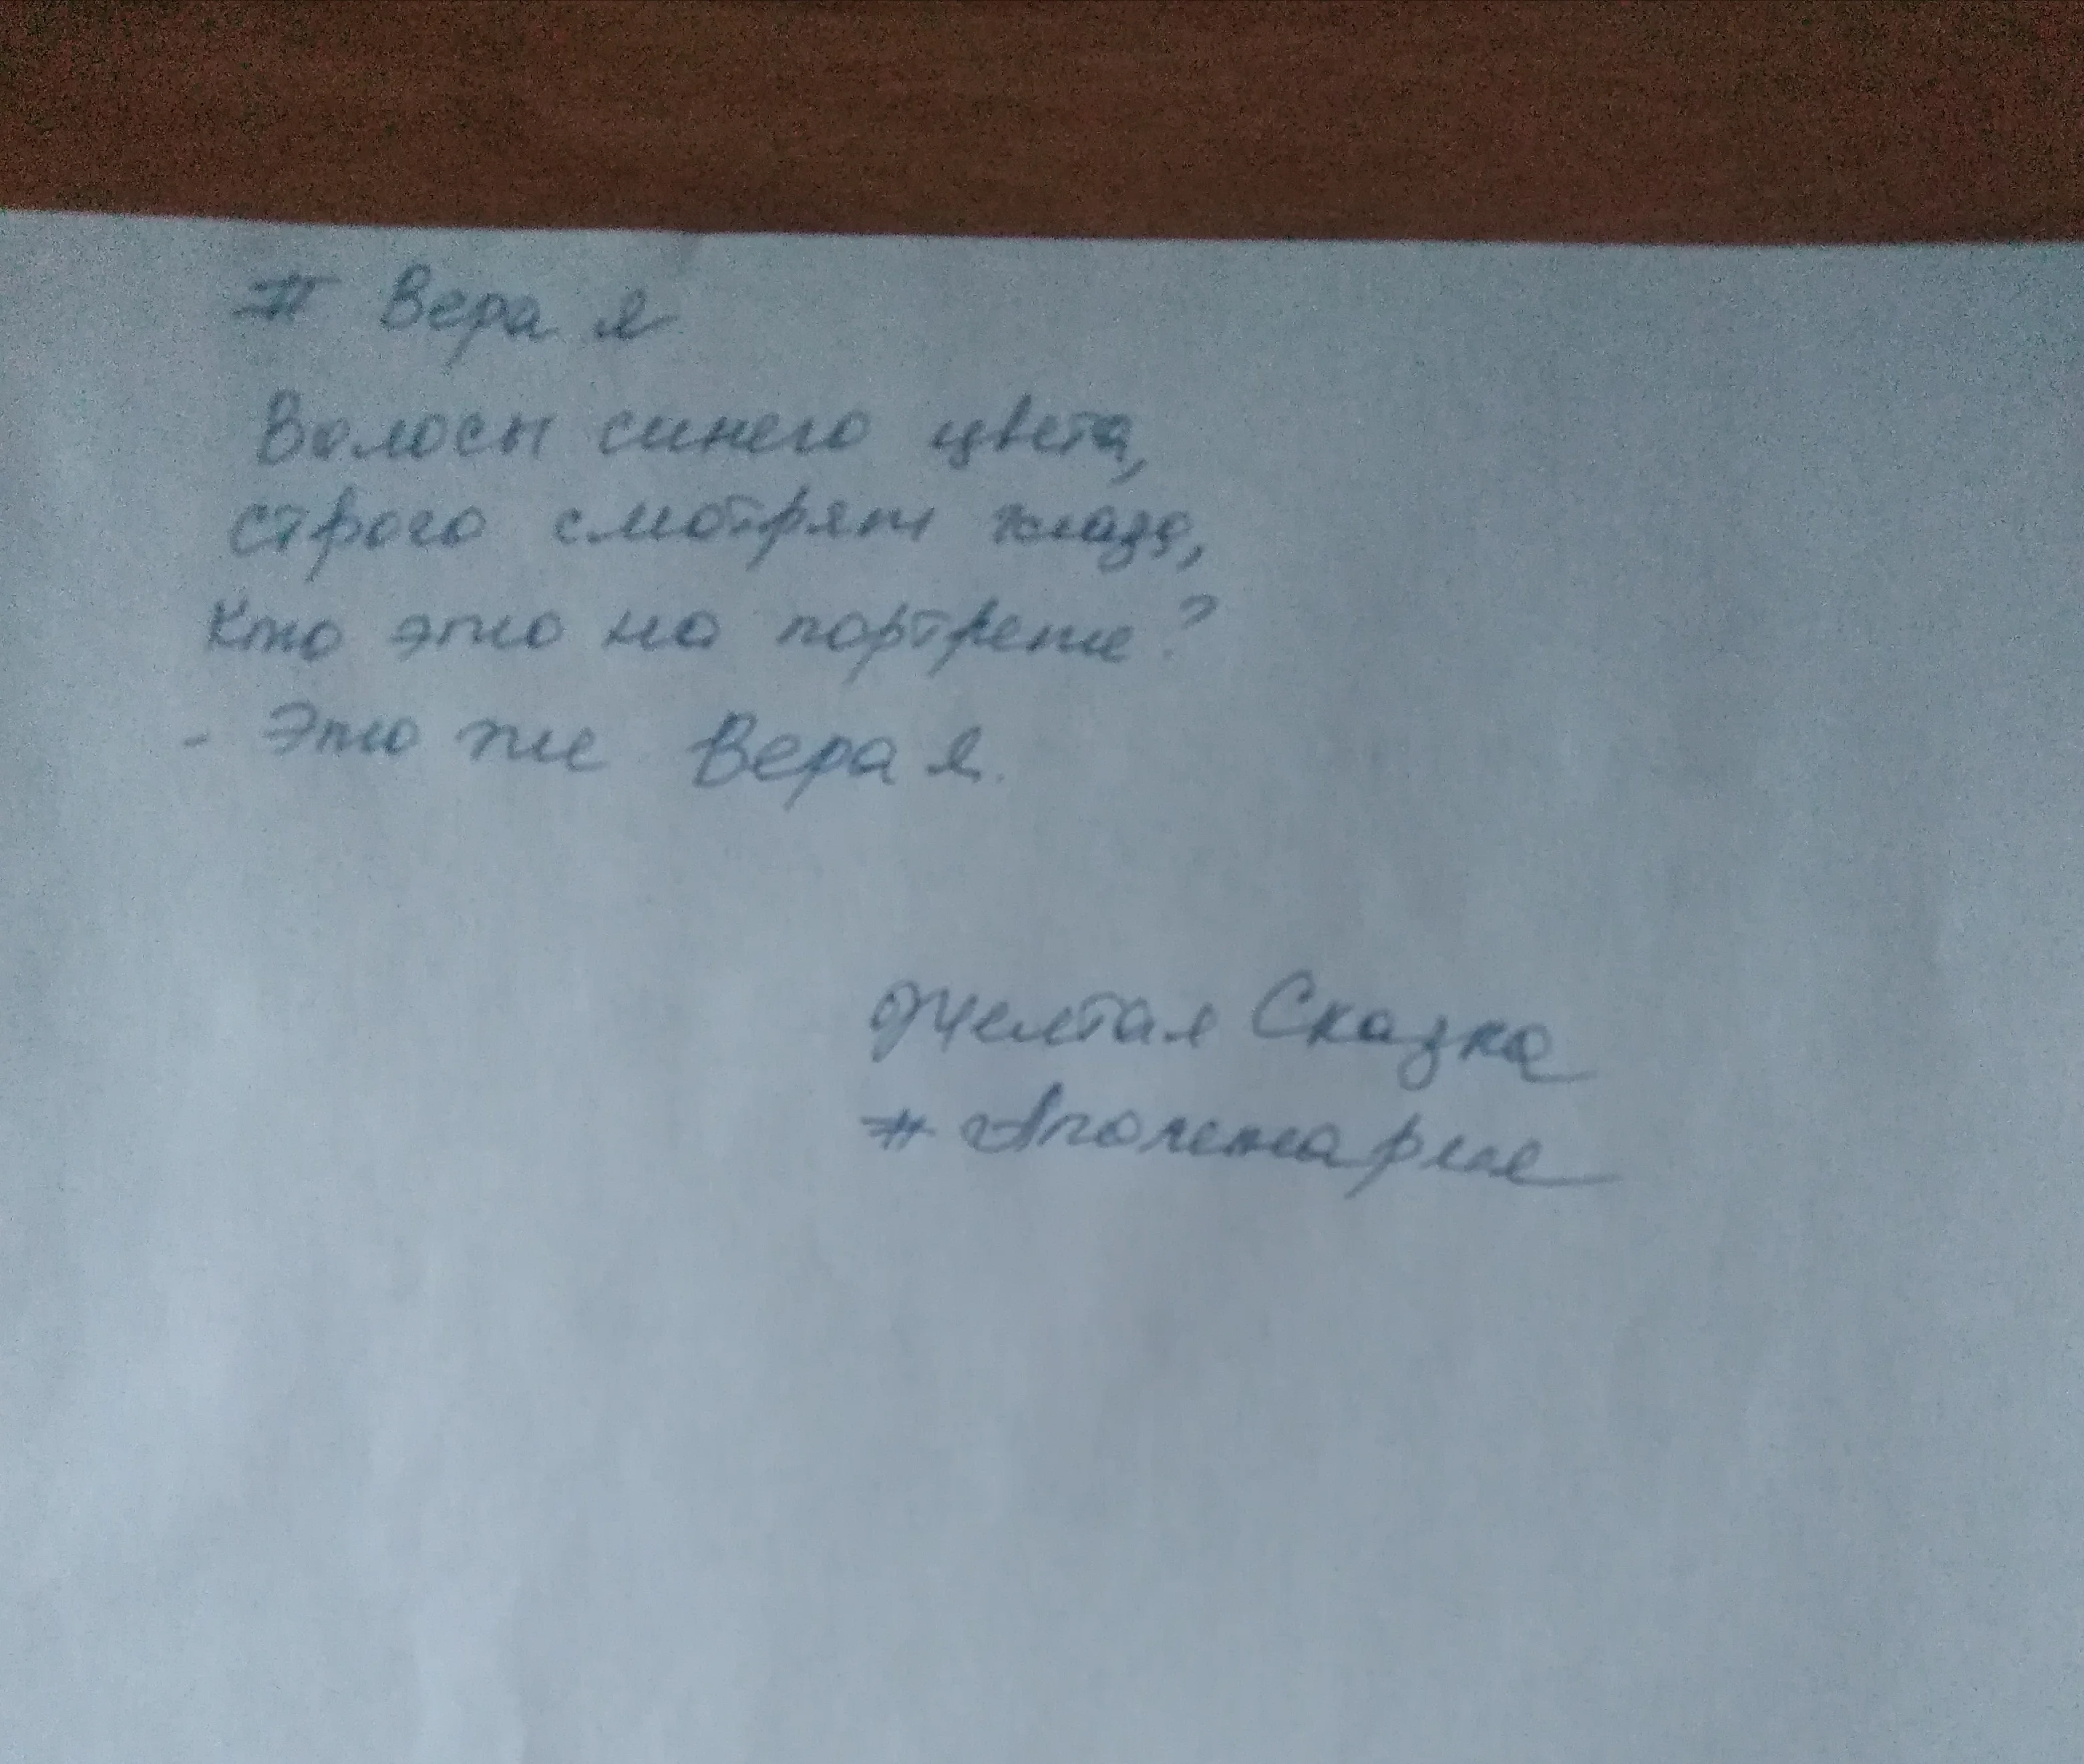 # Вера я
Волосы синего цвета,
строго смотрят глаза,
Кто это на портрете?
- Это же Вера я.
Желтая Сказка
#